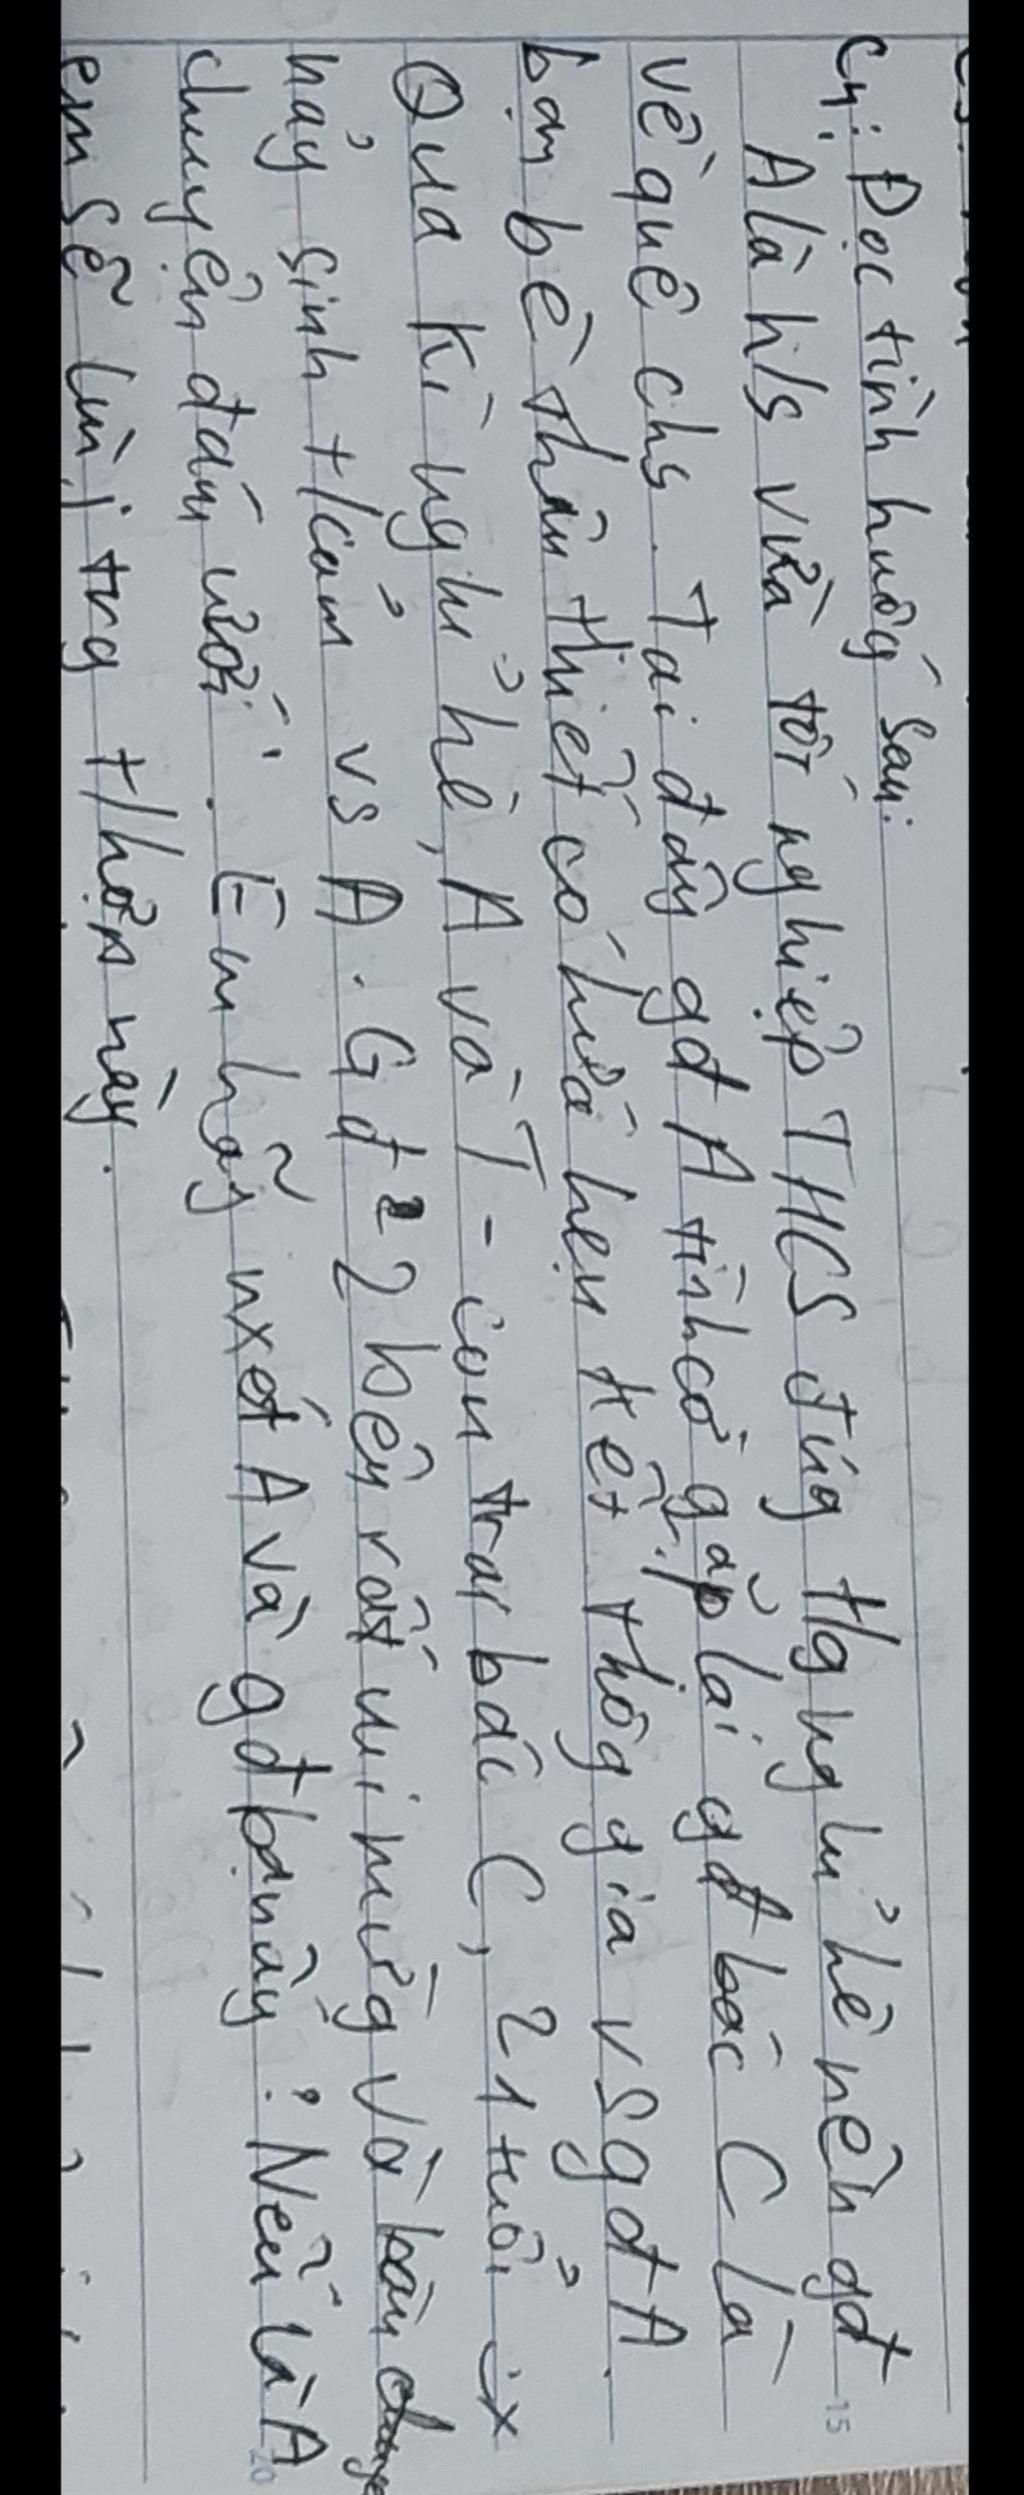 C4: Đọc tình huốg sau:
A là h/s vừa tốt nghiệp THCS đúg t/g nghỉ hè nên gđ
về quê chs. Tại đây gđ A tình cờ gặp lại gđ bác C là
bạn bè thân thiết có hứa hẹn kết thôg gia vs gđ A.
Qua kì nghỉ hè, A và T - con trai bác C, 21 tuổi
nảy sinh t/cảm vs A. Gđ 2 bên rất vui mừg và bàn
chuyện đám cưới. Em hãy nxét A và gđ bạn ấy? Nếu là A
em sẽ làm j trg t/hợp này.
15
20